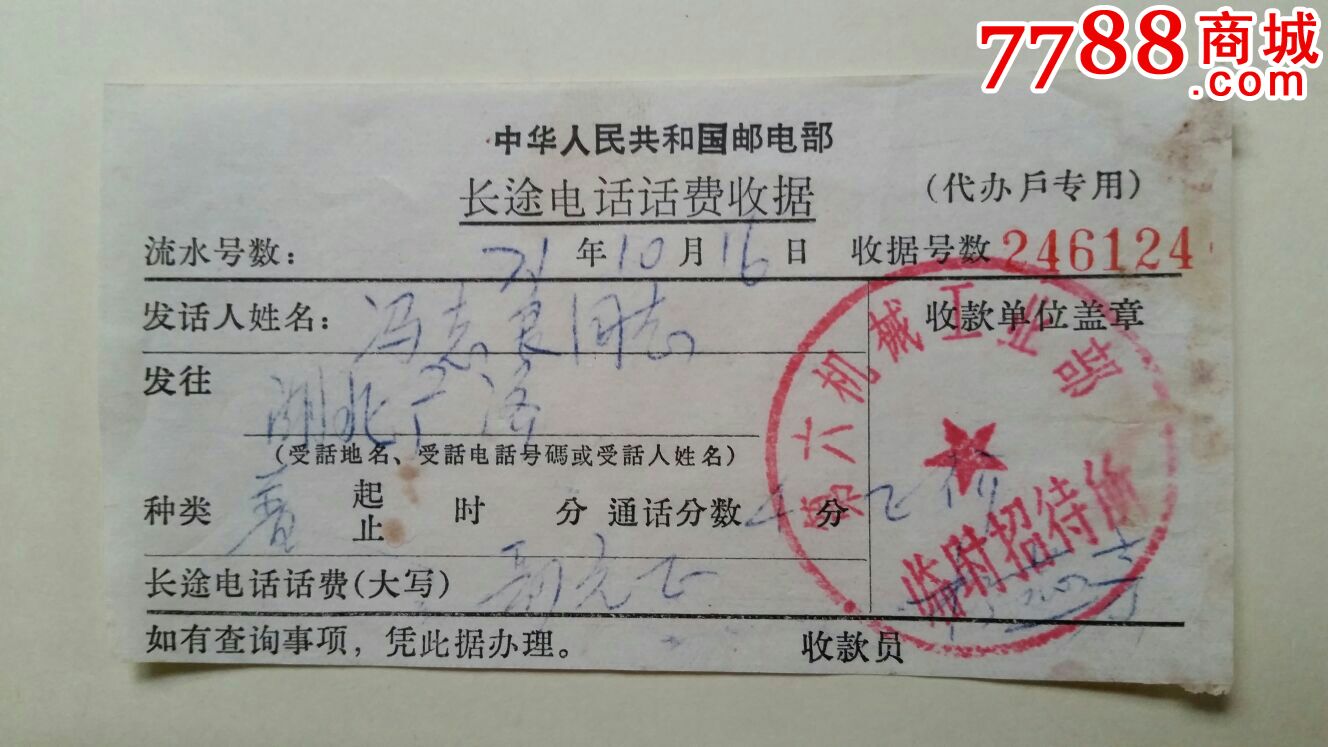 7788商城
.com
中华人民共和国邮电部
长途电话话费收据
(代办戶专用)
流水号数: 71年10月16日 收据号数 246124
发话人姓名: 冯志良同志 收款单位盖章
发往 湖北广济
(受話地名、受話电話号碼或受話人姓名)
种类 普 起止 时 分 通话分数 4 分
长途电话话费(大写)
如有查询事项，凭此据办理。 收款员
第六机械工业部
临时招待